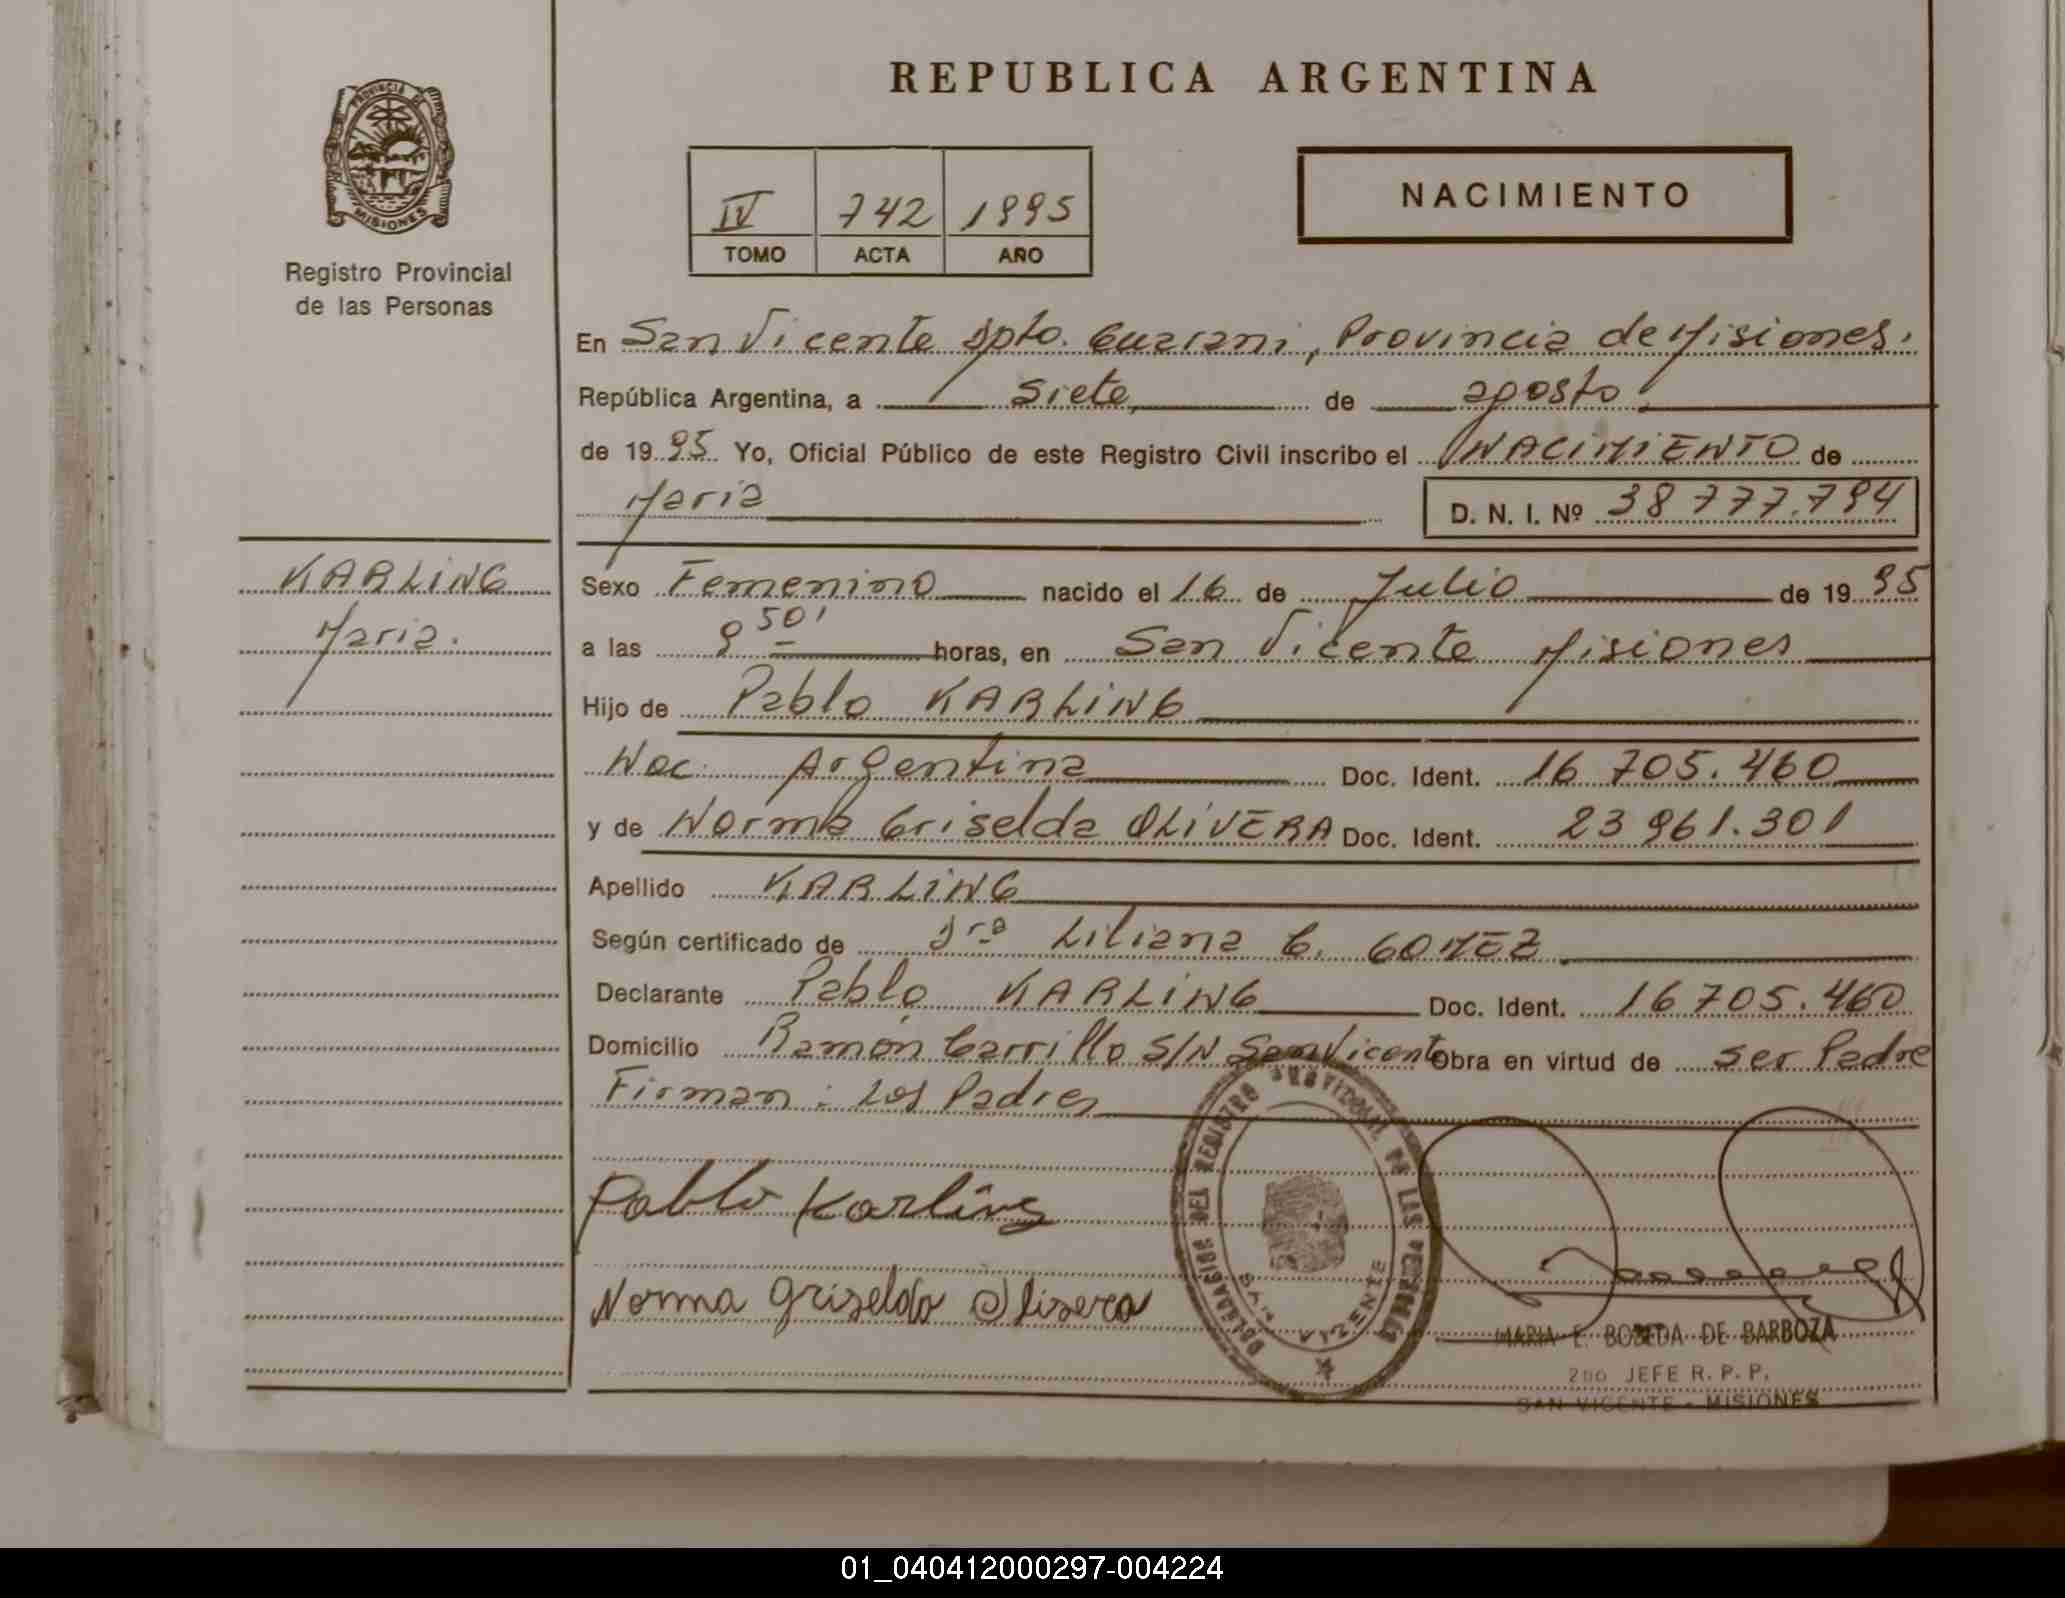 REPUBLICA ARGENTINA
PROVINCIA DE
MISIONES
Registro Provincial
de las Personas
IV 742 1995
TOMO ACTA AÑO
NACIMIENTO
En San Vicente Dpto. Guarani, Provincia de Misiones.
República Argentina, a siete, de agosto
de 1995 Yo, Oficial Público de este Registro Civil inscribo el NACIMIENTO de
Maria D. N. I. Nº 38 777.794
KARLING
Maria.
Sexo Femenino nacido el 16 de Julio de 1995
a las 9 50' horas, en San Vicente Misiones
Hijo de Pablo KARLING
Nac. Argentina Doc. Ident. 16 705.460
y de Norma Griselda OLIVERA Doc. Ident. 23 961.301
Apellido KARLING
Según certificado de Dra Liliana G. GOMEZ
Declarante Pablo KARLING Doc. Ident. 16 705.460
Domicilio Ramón Carrillo S/N San Vicente Obra en virtud de ser Padre
Firman: Los Padres
Pablo Karling
Norma Griselda Olivera
DELEGACION DEL REGISTRO PROVINCIAL DE LAS PERSONAS
SAN VICENTE
MARIA E. BOBEDA DE BARBOZA
2DO JEFE R. P. P.
SAN VICENTE - MISIONES
01_040412000297-004224